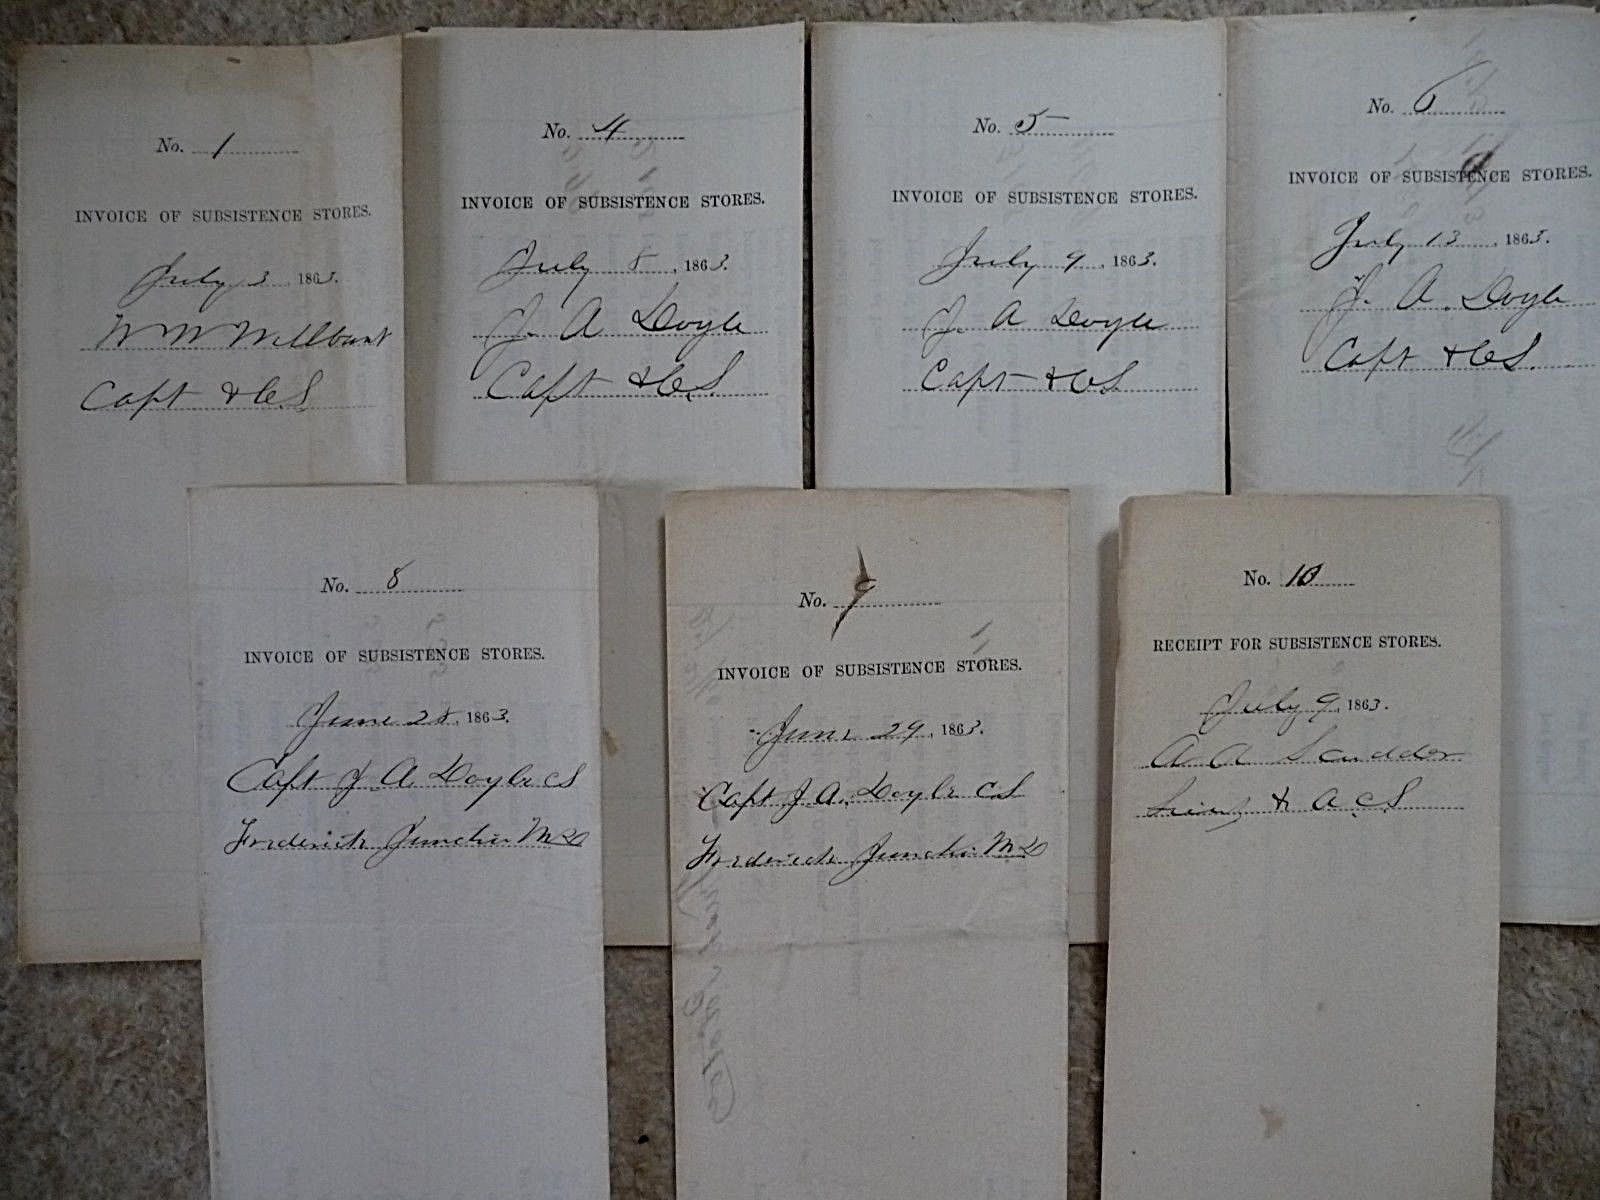 No. 1
INVOICE OF SUBSISTENCE STORES.
July 3, 1863.
W W
Capt & C S
No. 4
INVOICE OF SUBSISTENCE STORES.
July 8, 1863.
J. A Doyle
Capt & C. S.
No. 5
INVOICE OF SUBSISTENCE STORES.
July 9, 1863.
J. A Doyle
Capt & C S
No. 6
INVOICE OF SUBSISTENCE STORES.
July 13, 1863.
J. A. Doyle
Capt & C S.
No. 8
INVOICE OF SUBSISTENCE STORES.
June 28, 1863.
Capt J. A. Doyle C S
Frederick Junction Md
No. 9
INVOICE OF SUBSISTENCE STORES.
June 29, 1863.
Capt J. A. Doyle C S
Frederick Junction Md
No. 10
RECEIPT FOR SUBSISTENCE STORES.
July 9, 1863.
A A Scudder
Lieut & A. C. S